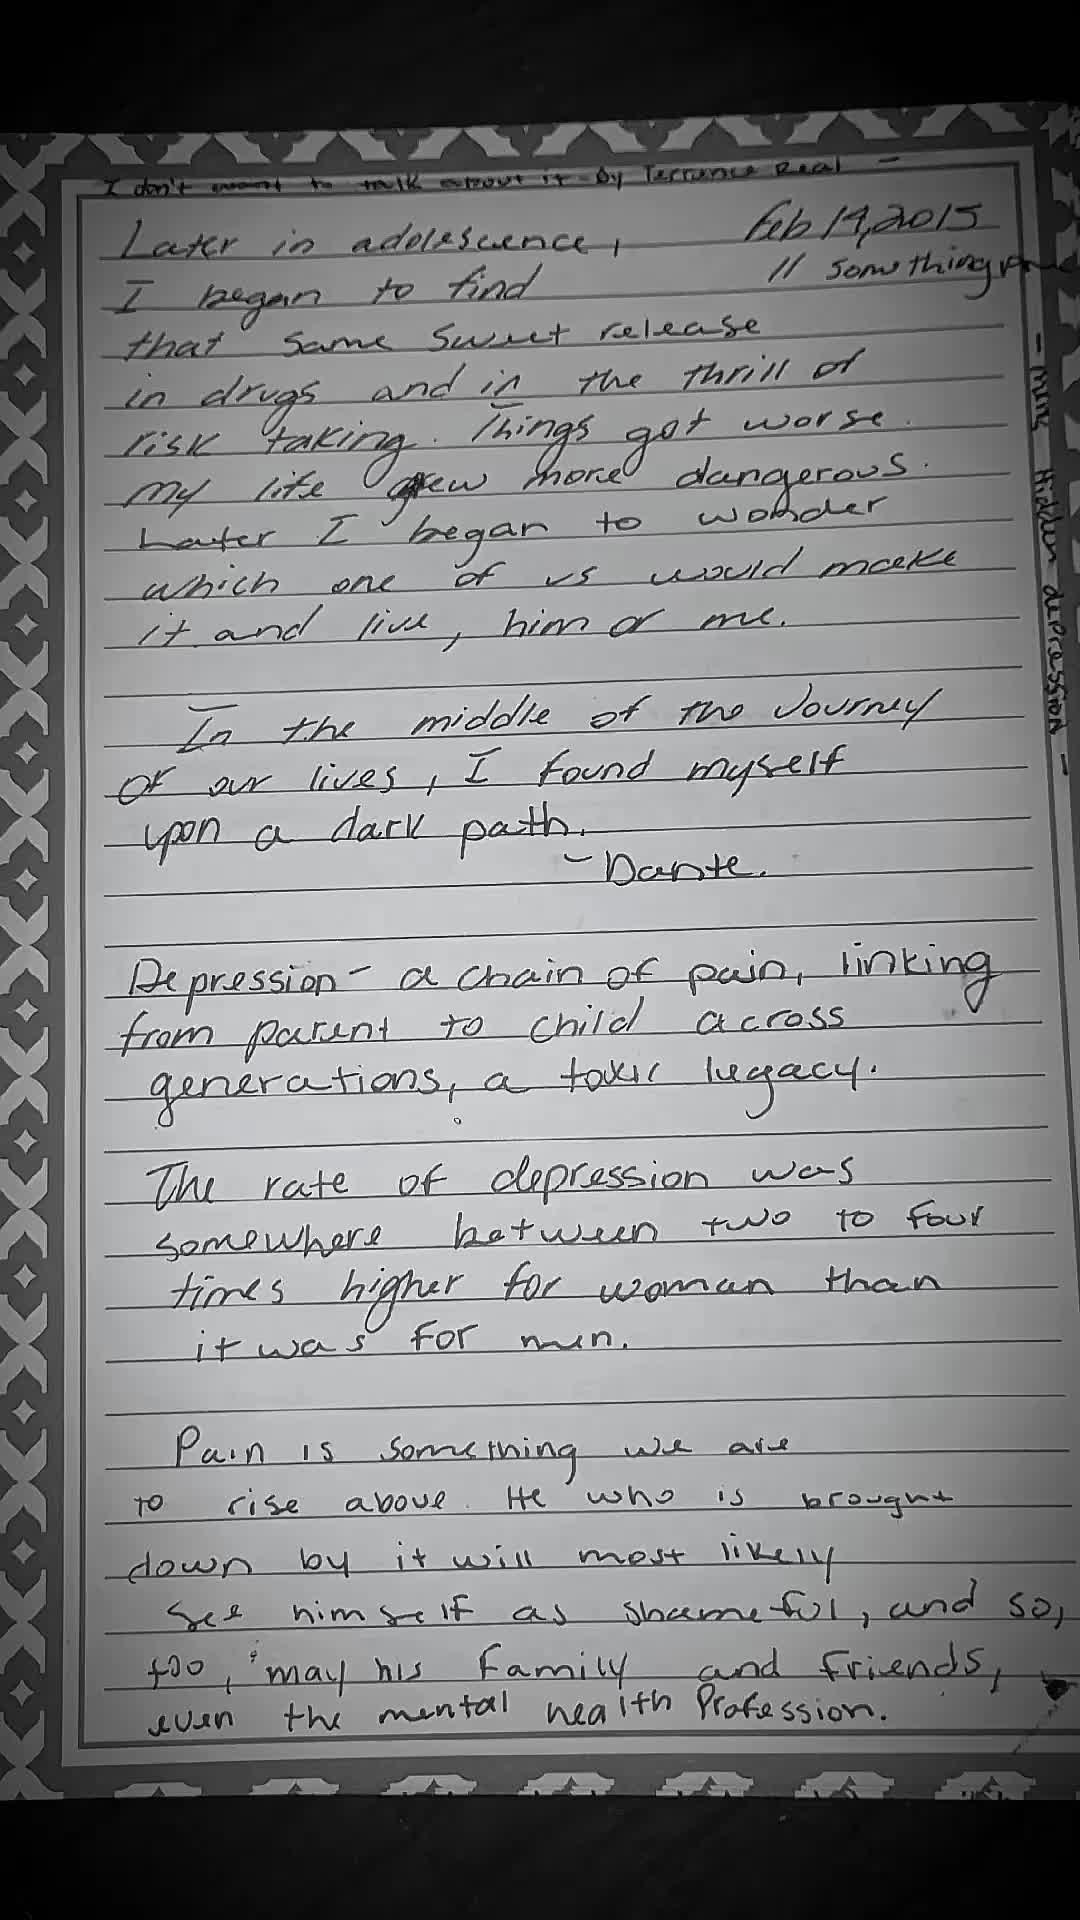 I don't want to talk about it - By Terrance Real -
Feb 14, 2015
Later in adolescence,
// something
I began to find
that same sweet release
in drugs and in the thrill of
risk taking. Things got worse.
my life grew more dangerous.
Later I began to wonder
which one of us would make
it and live, him or me.
In the middle of the Journey
of our lives, I found myself
upon a dark path.
- Dante.
Depression - a chain of pain, linking
from parent to child across
generations, a toxic legacy.
The rate of depression was
somewhere between two to four
times higher for woman than
it was for men.
Pain is something we are
to rise above. He who is brought
down by it will most likely
see himself as shameful, and so,
too, may his family and friends,
even the mental health Profession.
- Mens Hidden depression -